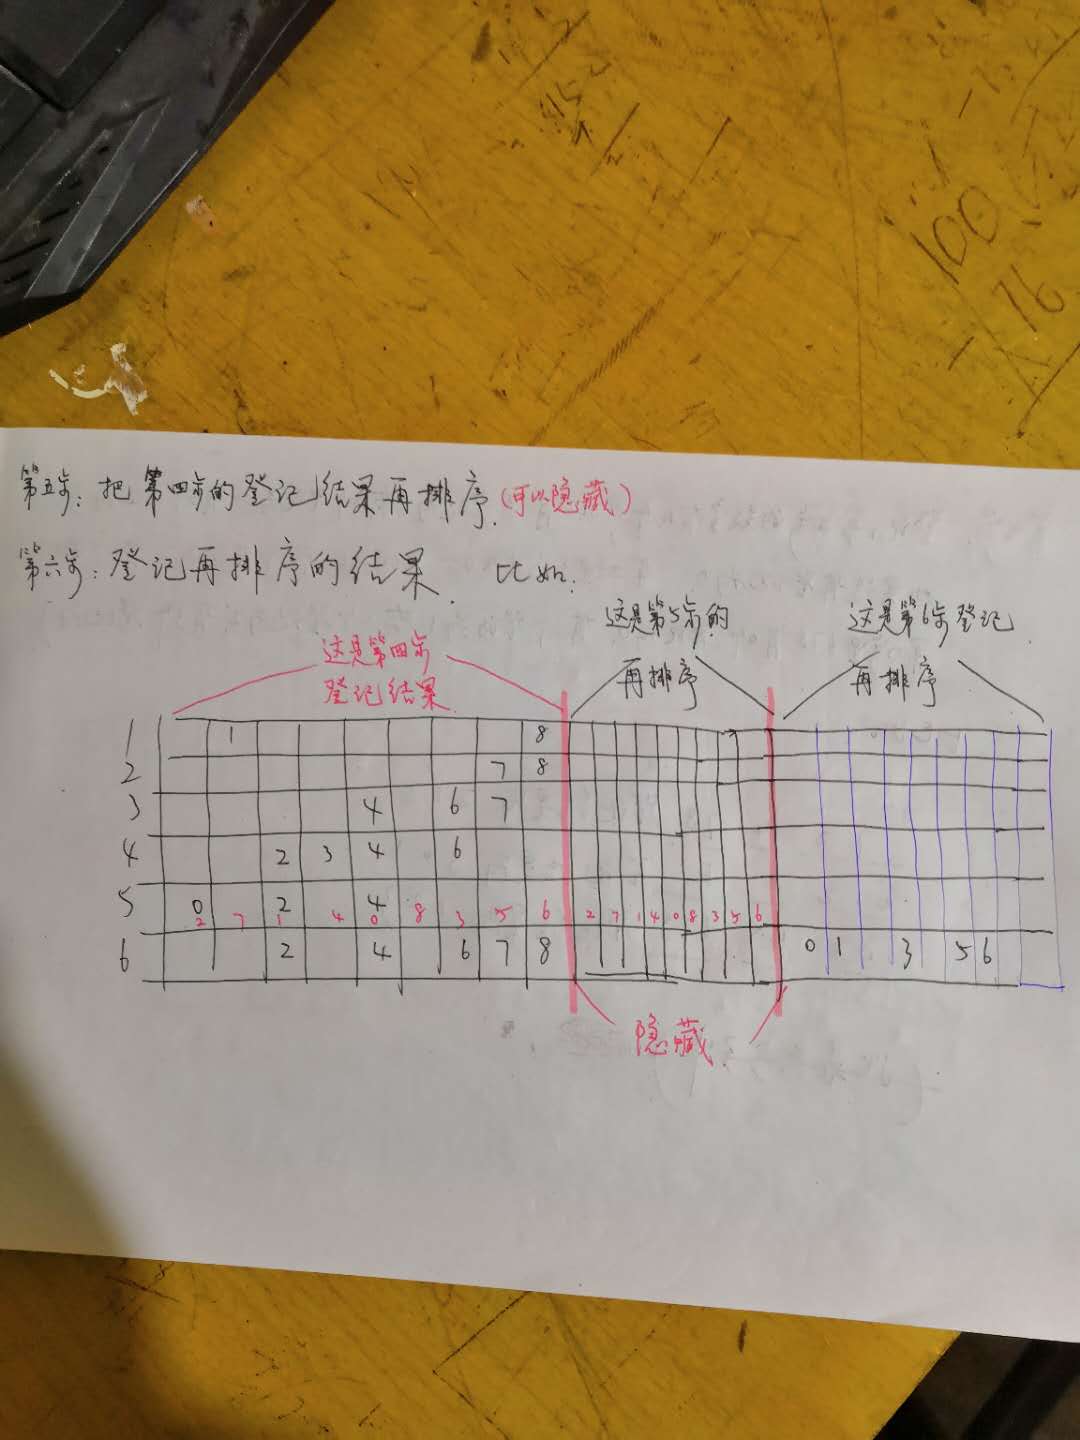 第五步：把第四步的登记结果再排序.(可以隐藏)
第六步：登记再排序的结果. 比如.
这是第四步
登记结果
这是第5步的
再排序
这是第6步登记
再排序
1 1 8
2 7 8
3 4 6 7
4 2 3 4 6
5 0 2 4
2 7 1 4 0 8 3 5 6 2 7 1 4 0 8 3 5 6
6 2 4 6 7 8 0 1 3 5 6
隐藏.
100
76